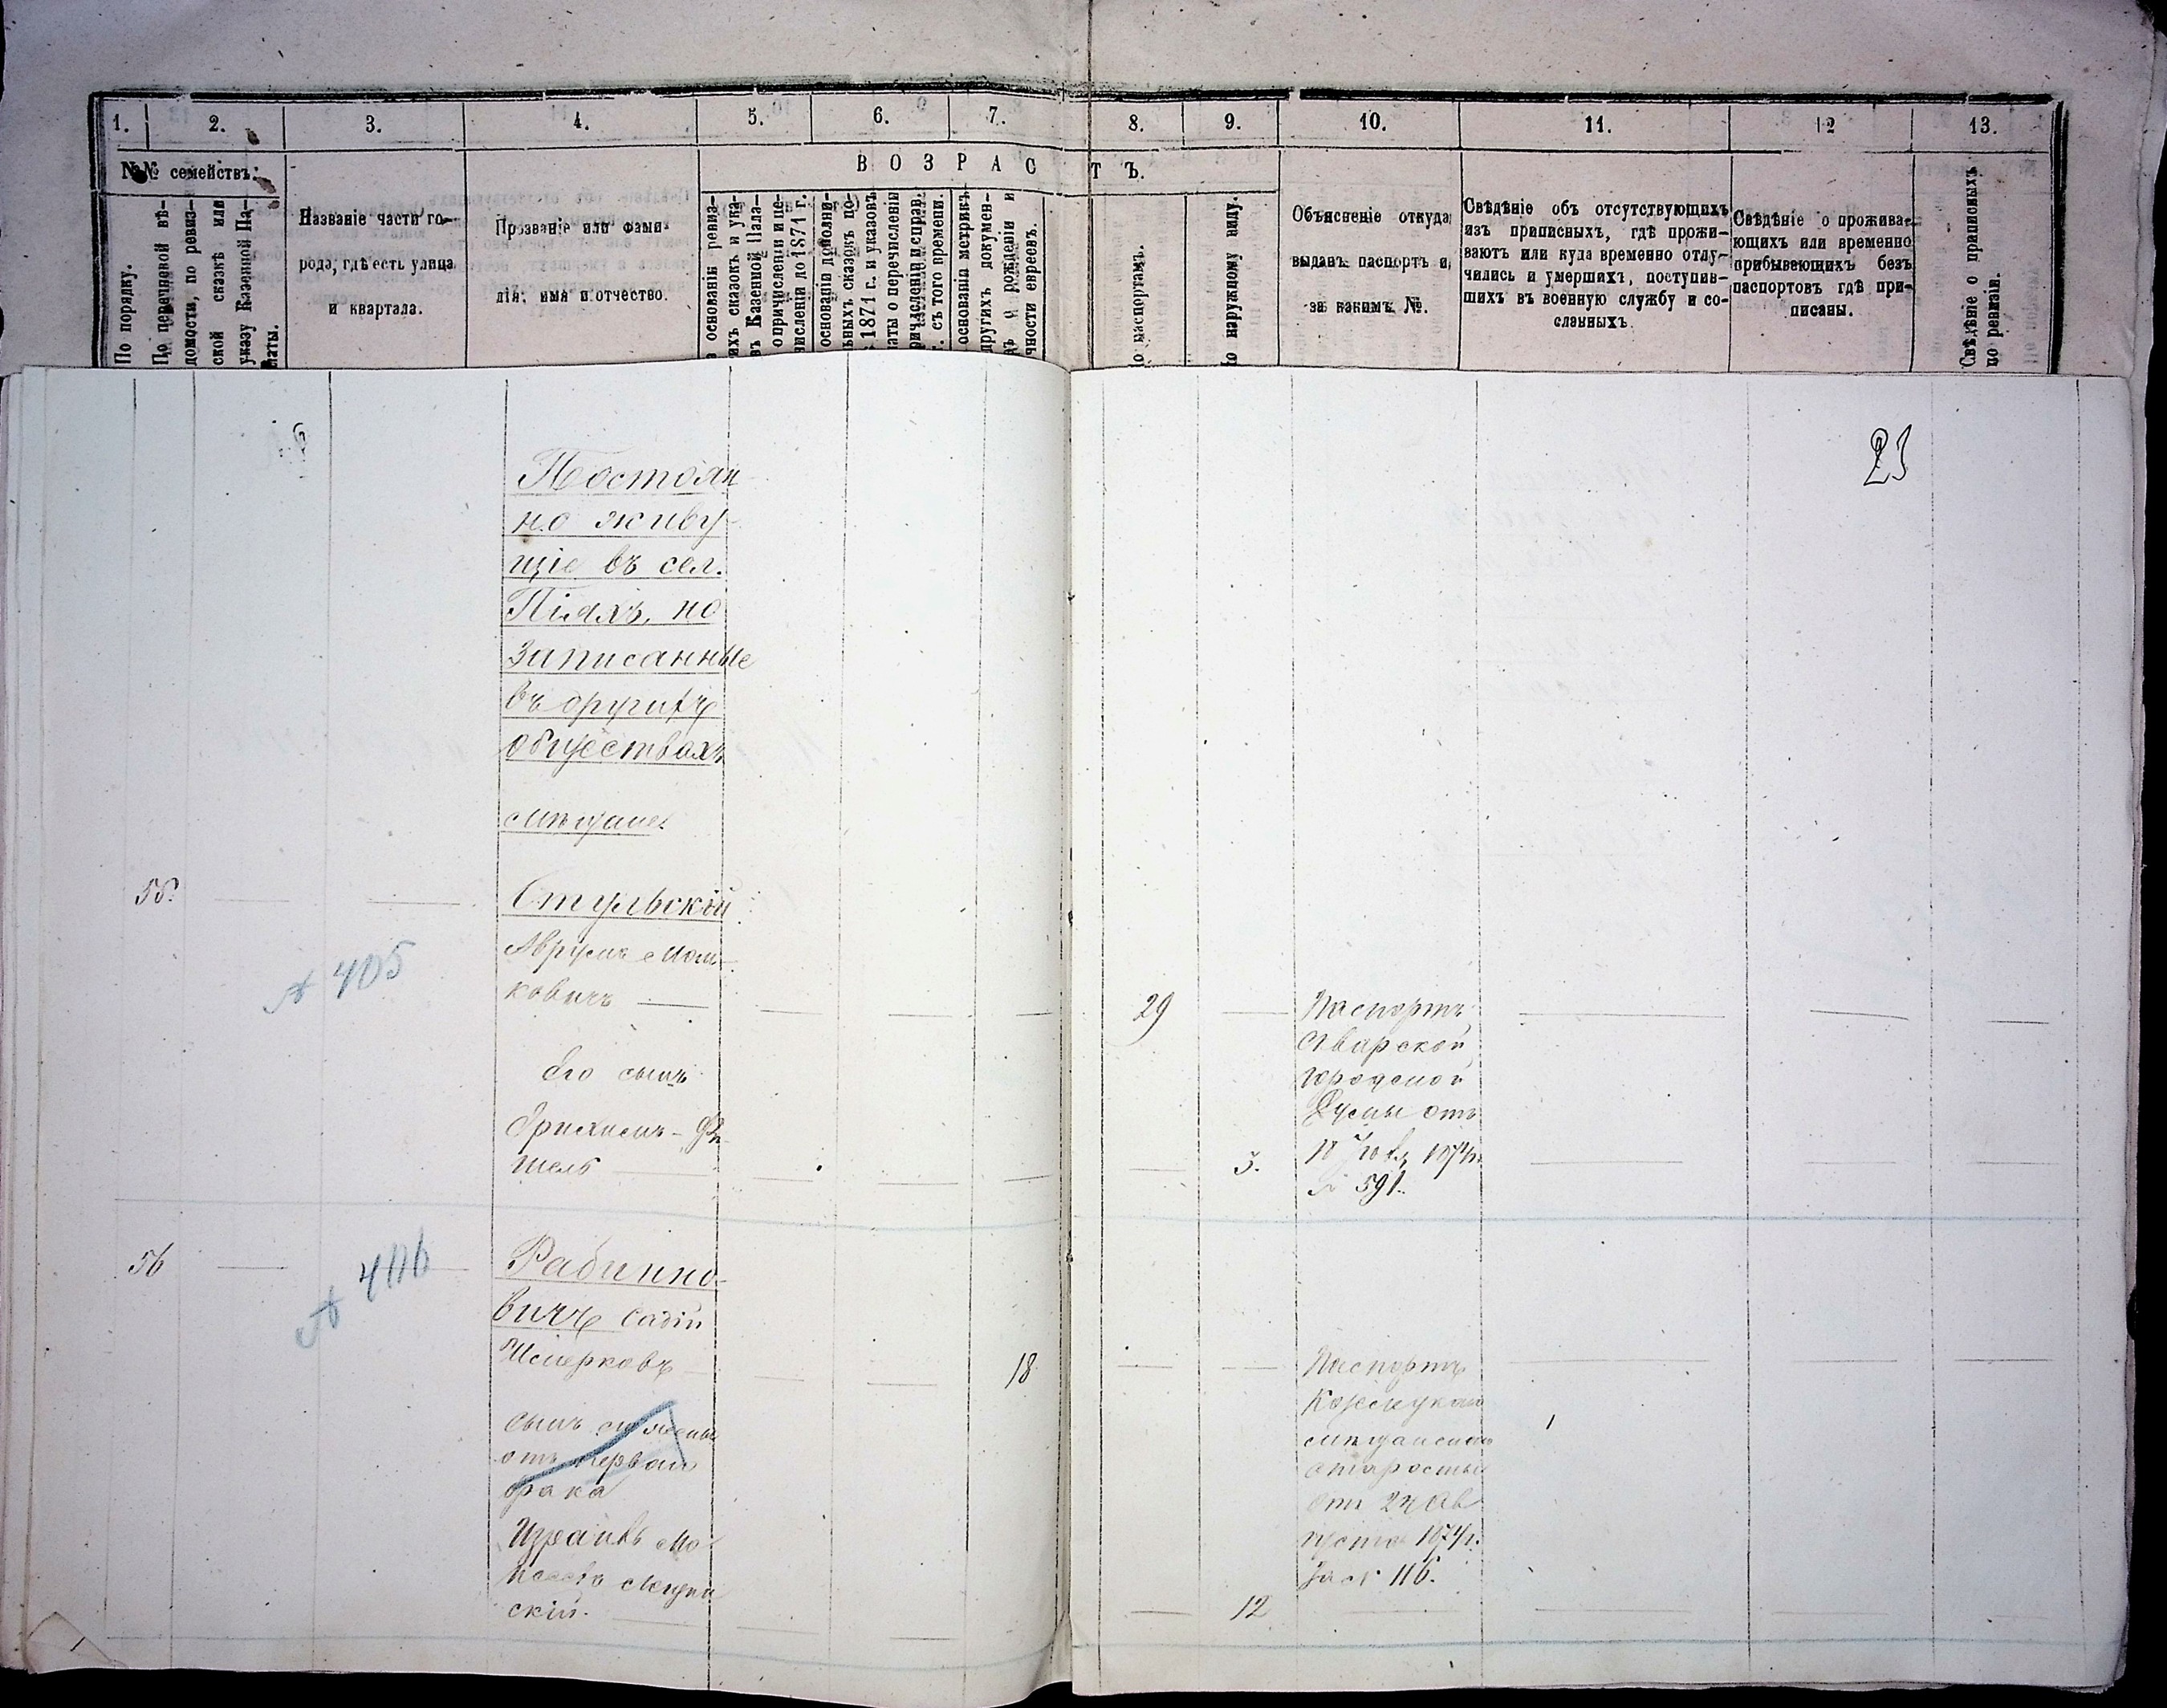 1. 2. 3. 4. 5. 6. 7. 8. 9. 10. 11. 12 13.
№№ семействъ.
В О З Р А С Т Ъ.
По порядку.
По перечневой вѣ-
домости, по ревиз-
ской сказкѣ или
указу Казенной Па-
латы.
Названіе части го-
рода, гдѣ есть улица
и квартала.
Прозваніе или фами-
лія, имя и отчество.
основаніи ревиз-
ихъ сказокъ и ука-
въ Казенной Пала-
о причисленіи и пе-
численіи до 1871 г.
основаніи дополни-
ьныхъ сказокъ по-
1871 г. и указовъ
латы о перечисленіи
причисленіи и справ.
г. съ того времени.
основаніи метрикъ
другихъ докумен-
ъ о рожденіи и
чности евреевъ.
По паспортамъ.
По наружному виду.
Объясненіе откуда
выданъ паспортъ и
за какимъ №.
Свѣдѣніе объ отсутствующихъ
изъ приписныхъ, гдѣ прожи-
ваютъ или куда временно отлу-
чились и умершихъ, поступив-
шихъ въ военную службу и со-
сланныхъ
Свѣдѣніе о прожива-
ющихъ или временно
прибывающихъ безъ
паспортовъ гдѣ при-
писаны.
Свѣдѣніе о приписныхъ
по ревизіи.
23
Постоян-
но живу-
щіе въ сел.
Піяхъ, но
записанные
въ другихъ
обществахъ
Мѣщане
55.
Стульскій
№ 405
Аврумъ
ковичъ
29
Паспортъ
городской
Думы отъ
Его сынъ
шель
5.
1874г.
№ 591.
56
№ 406
Рабино-
вичъ
18
Паспортъ
сынъ его жены
отъ перваго
брака
мѣщанскаго
старосты
отъ 24 Ав
густа 1874г.
за № 116.
Израиль Мо-
скій.
12